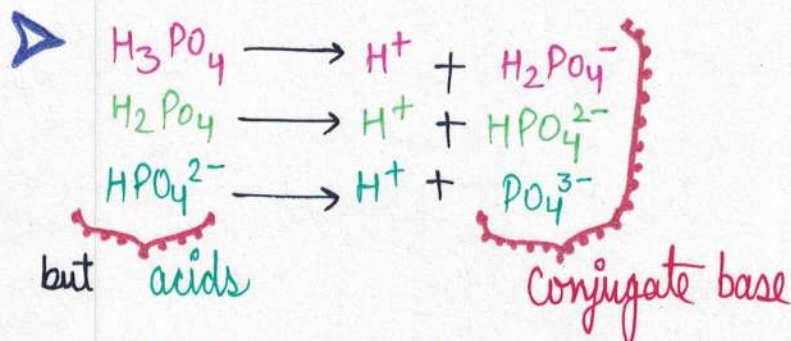 H₃PO₄ ⟶ H⁺ + H₂PO₄⁻
H₂PO₄ ⟶ H⁺ + HPO₄²⁻
HPO₄²⁻ ⟶ H⁺ + PO₄³⁻
but acids conjugate base